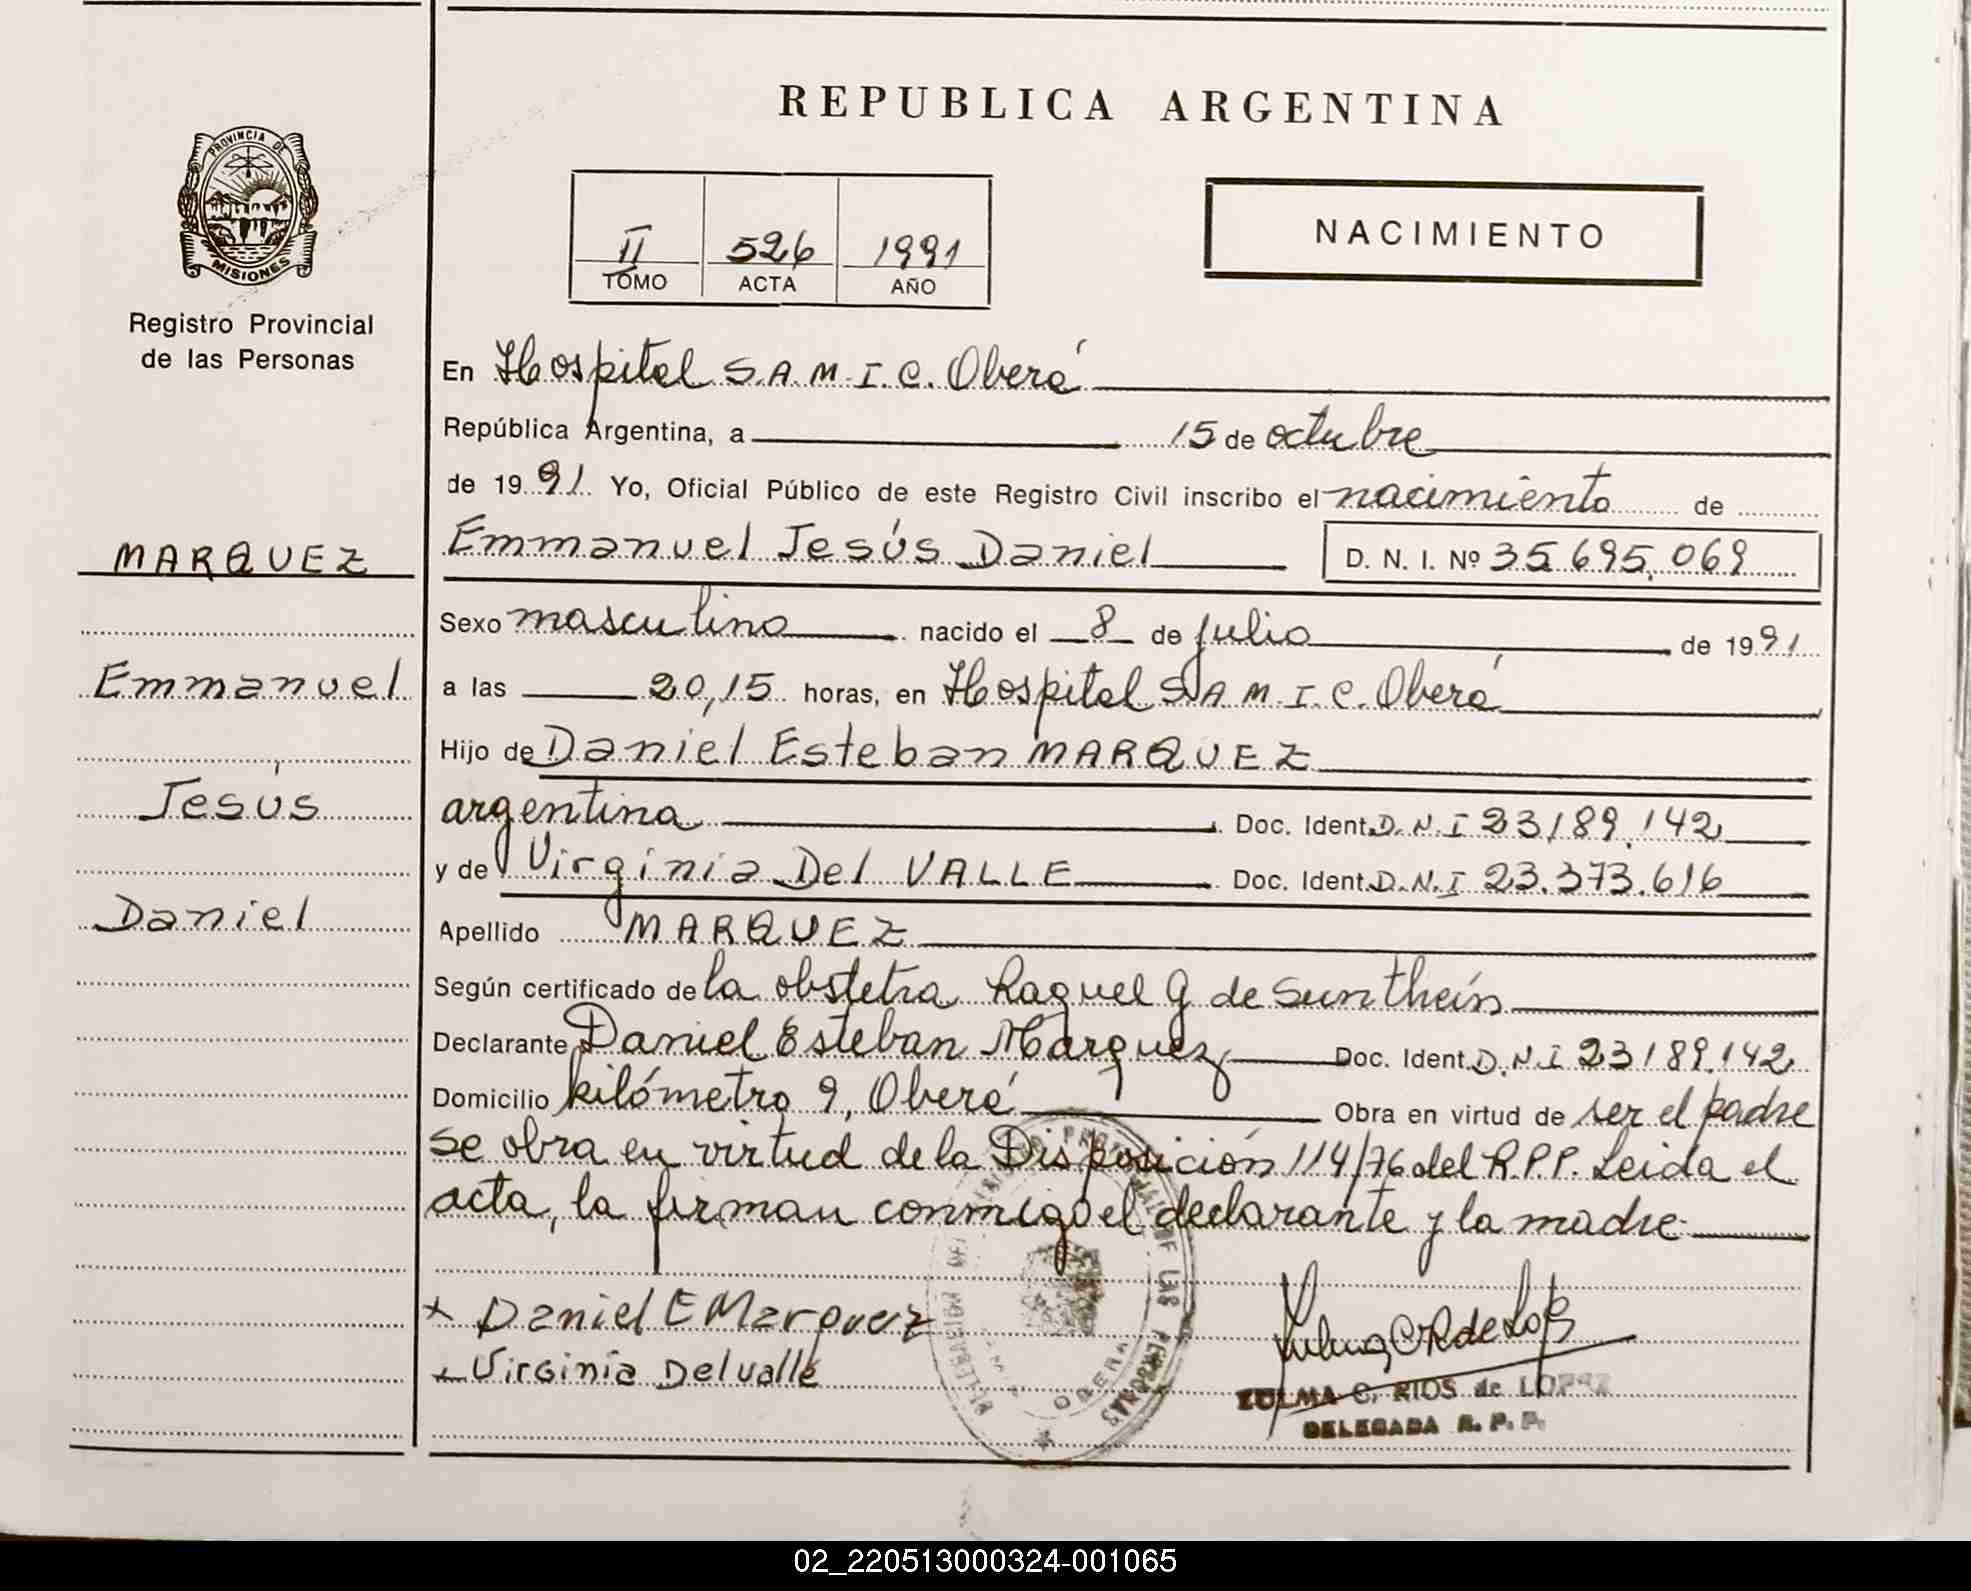 REPUBLICA ARGENTINA
PROVINCIA DE
MISIONES
Registro Provincial
de las Personas
II 526 1991
TOMO ACTA AÑO
NACIMIENTO
MARQUEZ
Emmanuel
Jesús
Daniel
En Hospital S.A.M.I.C. Oberá
República Argentina, a 15 de octubre
de 1991. Yo, Oficial Público de este Registro Civil inscribo el nacimiento de
Emmanuel Jesús Daniel D. N. I. Nº 35.695.069
Sexo masculino nacido el 8 de julio de 1991
a las 20,15 horas, en Hospital S.A.M.I.C. Oberá
Hijo de Daniel Esteban MARQUEZ
argentina Doc. Ident. D.N.I 23189.142
y de Virginia Del VALLE Doc. Ident. D.N.I 23.373.616
Apellido MARQUEZ
Según certificado de la obstetra Raquel G de Sunthein
Declarante Daniel Esteban Marquez Doc. Ident. D.N.I 23189.142
Domicilio kilómetro 9, Oberá Obra en virtud de ser el padre
se obra en virtud de la Disposición 114/76 del R.P.P. Leida el
acta, la firman conmigo el declarante y la madre
x Daniel E Marquez
x Virginia Delvalle
ZULMA C. RIOS de LOPEZ
DELEGADA R. P. P.
02_220513000324-001065